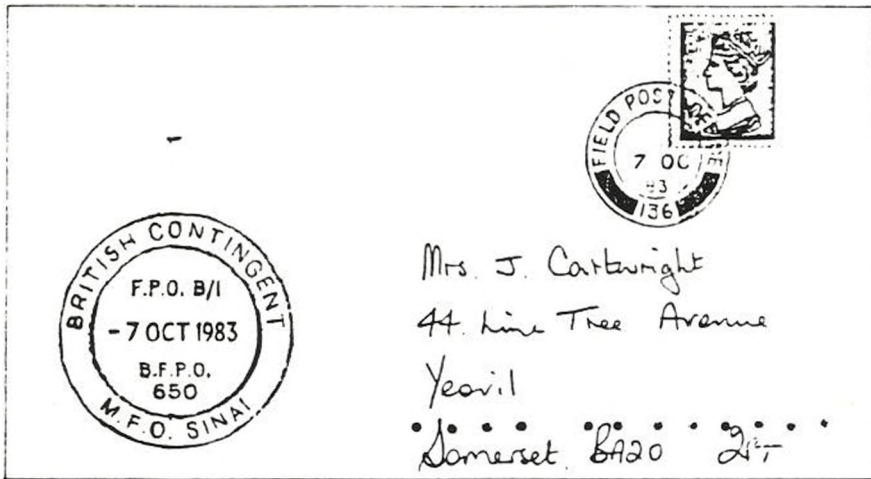 FIELD POST
7 OC
83
136
BRITISH CONTINGENT
F.P.O. B/1
-7 OCT 1983
B.F.P.O.
650
M.F.O. SINAI
Mrs. J. Cartwright
44. Lime Tree Avenue
Yeovil
Somerset. BA20